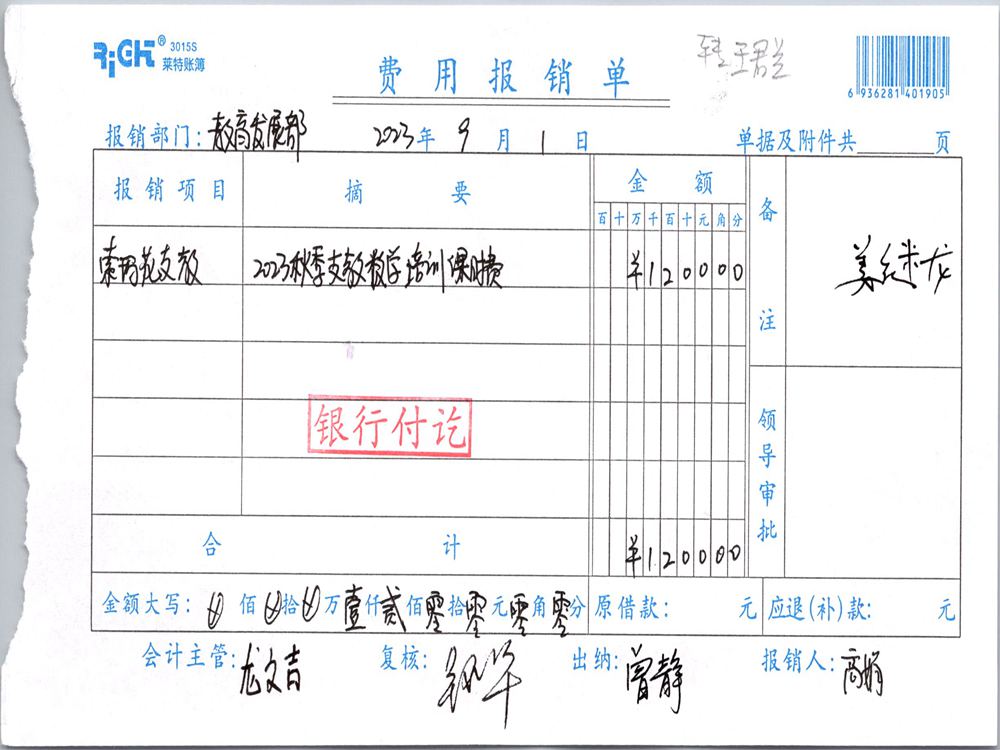 RiCH® 3015S
莱特账簿
费用报销单
王君兰
6 936281 401905
报销部门：教育发展部 2023年 9月 1日 单据及附件共 页
报销项目 摘要 金额 备注
百十万千百十元角分
索玛花支教 2023秋季支教教学培训课时费 ¥120000 姜继龙
银行付讫
领导审批
合计 ¥120000
金额大写：⊗佰⊗拾⊗万壹仟贰佰零拾零元零角零分 原借款： 元 应退(补)款： 元
会计主管：龙文吉 复核： 出纳：曾静 报销人：高娟